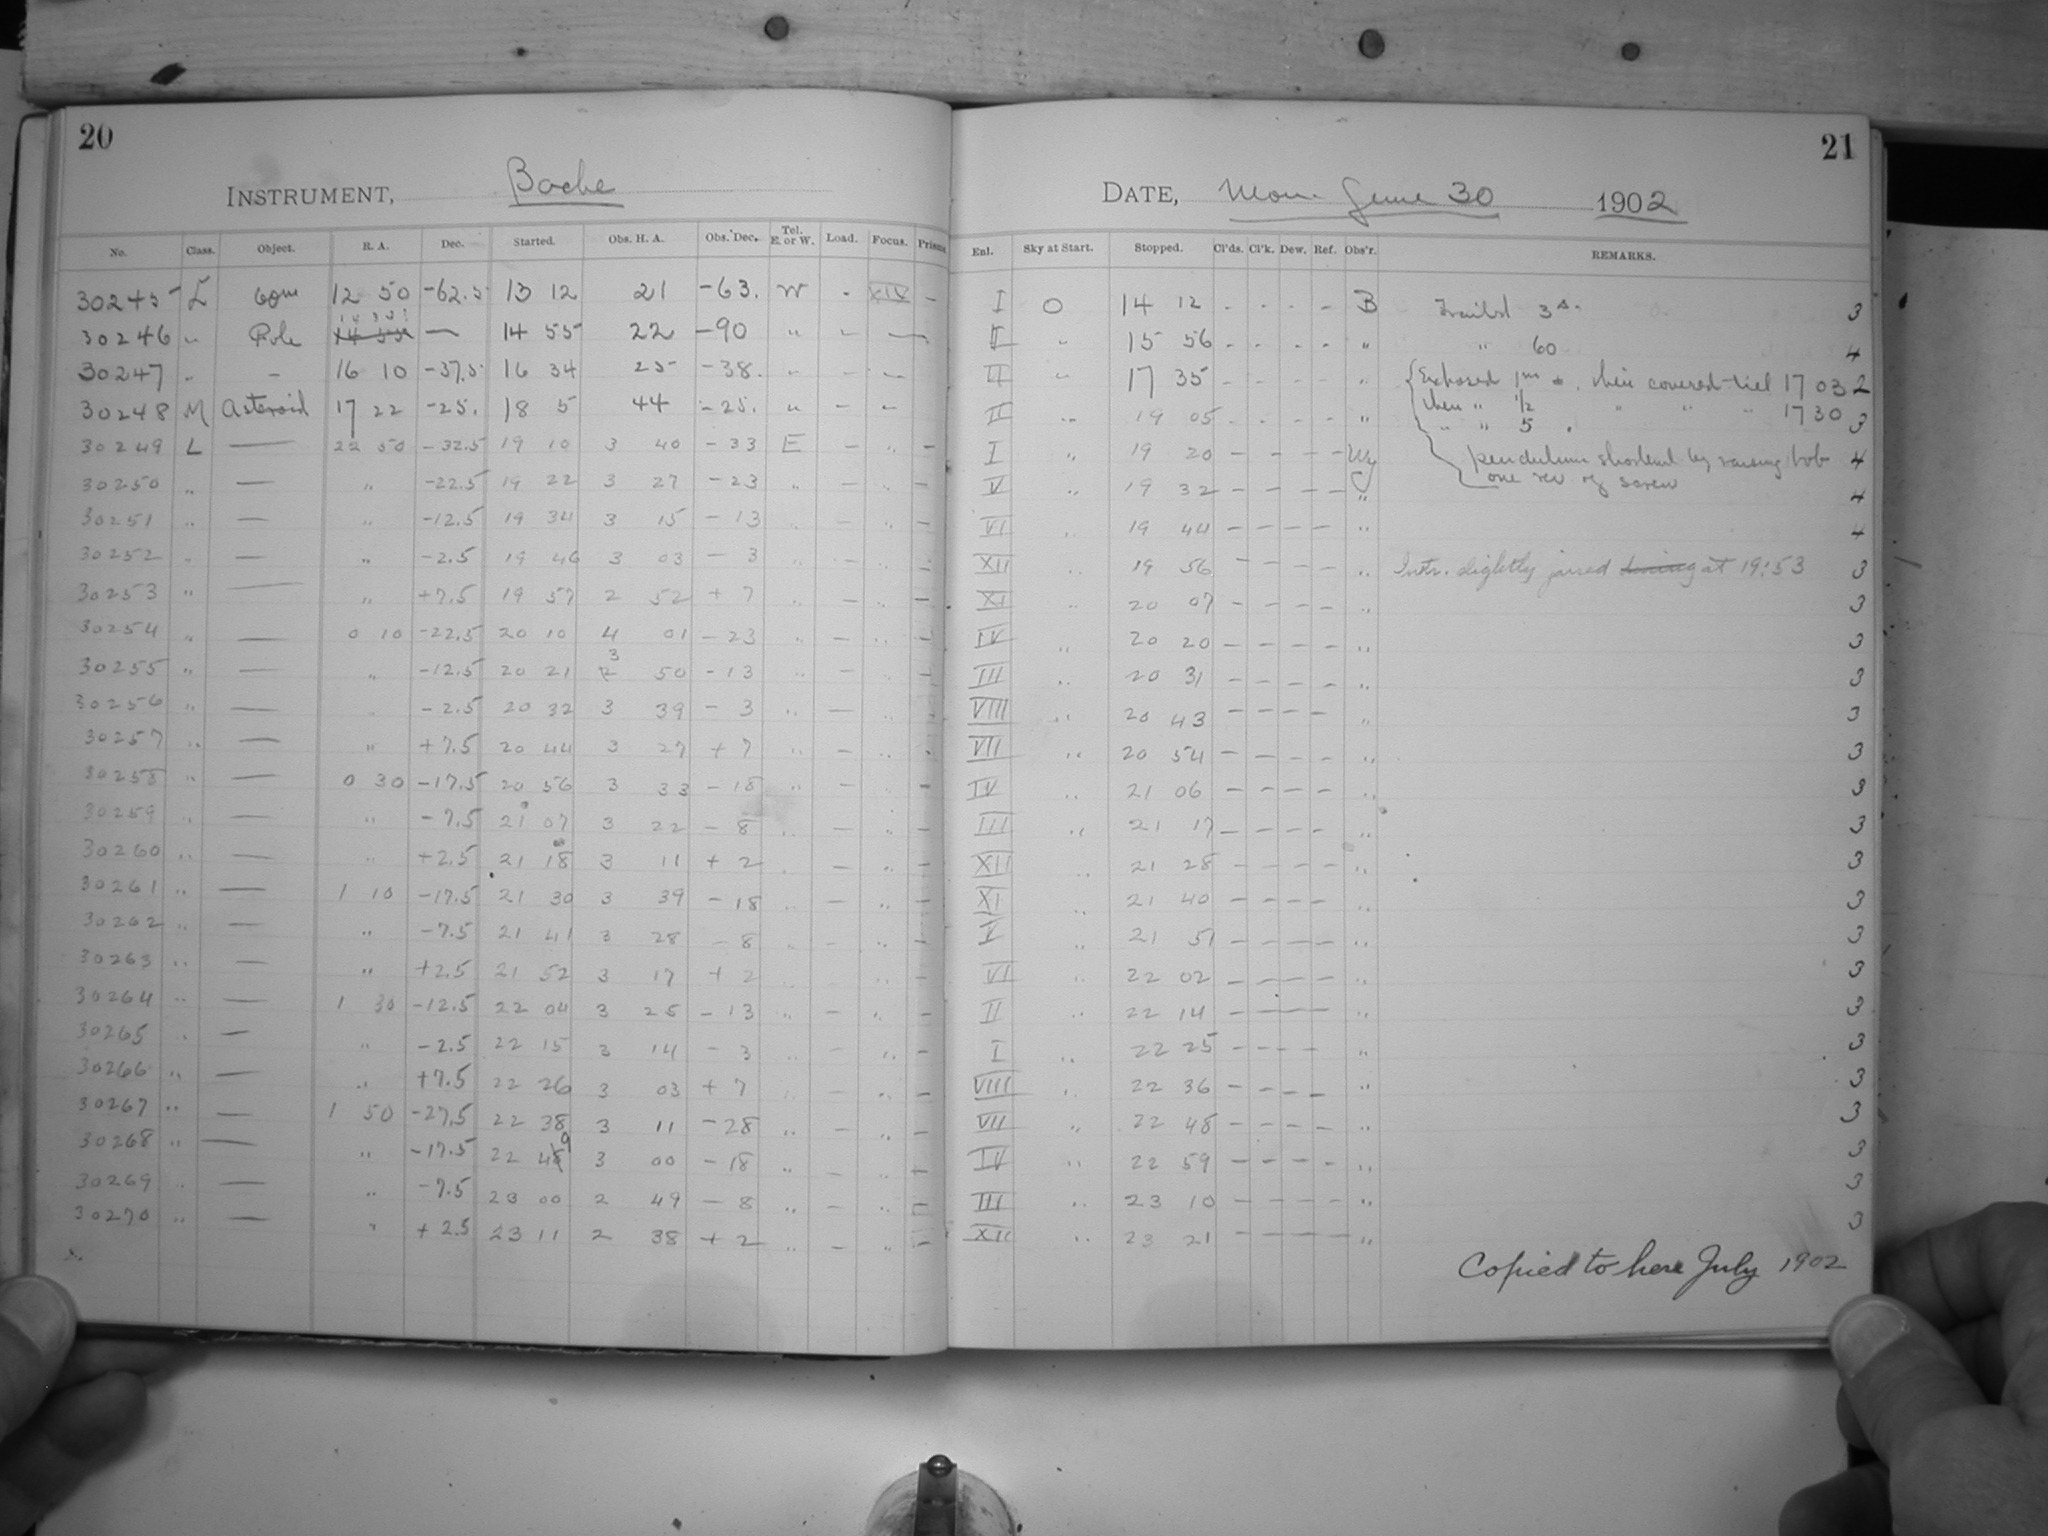 20
INSTRUMENT, Bache
No. Class. Object. R. A. Dec. Started. Obs. H. A. Obs. Dec. Tel. E. or W. Load. Focus. Prism
30245 L 60m 12 50 -62.5 13 12 21 -63. W - XIV -
30246 " Pole — 14 55 22 -90 " - —
30247 " - 16 10 -37.5 16 34 25 -38. " - -
30248 M Asteroid 17 22 -25. 18 5 44 -25. " - -
30249 L — 22 50 -32.5 19 10 3 40 -33 E — " —
30250 " — " -22.5 19 22 3 27 -23 " — " —
30251 " — " -12.5 19 34 3 15 -13 " — " —
30252 " — " -2.5 19 46 3 03 -3 " — " —
30253 " — " +7.5 19 57 2 52 +7 " — " —
30254 " — 0 10 -22.5 20 10 4 01 -23 " — " —
30255 " — " -12.5 20 21 3 50 -13 " — " —
30256 " — -2.5 20 32 3 39 -3 " — " -
30257 " — " +7.5 20 44 3 27 +7 " — " -
30258 " — 0 30 -17.5 20 56 3 33 -18 " — " —
30259 " — " -7.5 21 07 3 22 -8 " — " —
30260 " — " +2.5 21 18 3 11 +2 " — " —
30261 " — 1 10 -17.5 21 30 3 39 -18 " — " —
30262 " — " -7.5 21 41 3 28 -8 " — " —
30263 " — " +2.5 21 52 3 17 +2 " — " —
30264 " — 1 30 -12.5 22 04 3 25 -13 " — " —
30265 " — " -2.5 22 15 3 14 -3 " — " —
30266 " — " +7.5 22 26 3 03 +7 " — " —
30267 " — 1 50 -27.5 22 38 3 11 -28 " — " —
30268 " — " -17.5 22 49 3 00 -18 " — " —
30269 " — " -7.5 23 00 2 49 -8 " — " —
30270 " — " +2.5 23 11 2 38 +2 " — " —
21
DATE, Mon. June 30 1902
Enl. Sky at Start. Stopped. Cl'ds. Cl'k. Dew. Ref. Obs'r. REMARKS.
I 0 14 12 - - - - B Trailed 3 3
II " 15 56 - - - - " " 60 4
II " 17 35 - - - - " Exposed 1m, then covered till 17 03 2
II " 19 05 - - - - " then " 1/2 " " " 17 30 3
" " 5
I " 19 20 - - - - pendulum shortened by raising bob 4
one rev of screw
V " 19 32 - - - - " 4
VI " 19 44 - - - - " 4
XII " 19 56 - - - - " Instr. slightly jarred at 19:53 3
XI " 20 07 - - - - " 3
IV " 20 20 - - - - " 3
III " 20 31 - - - - " 3
VIII " 20 43 - - - - " 3
VII " 20 54 - - - - " 3
IV " 21 06 - - - - " 3
III " 21 17 - - - - " 3
XII " 21 28 - - - - " 3
XI " 21 40 - - - - " 3
V " 21 51 - - - - " 3
VI " 22 02 - - - - " 3
II " 22 14 - - - - " 3
I " 22 25 - - - - " 3
VIII " 22 36 - - - - " 3
VII " 22 48 - - - - " 3
IV " 22 59 - - - - " 3
III " 23 10 - - - - " 3
XII " 23 21 - - - - " 3
Copied to here July 1902